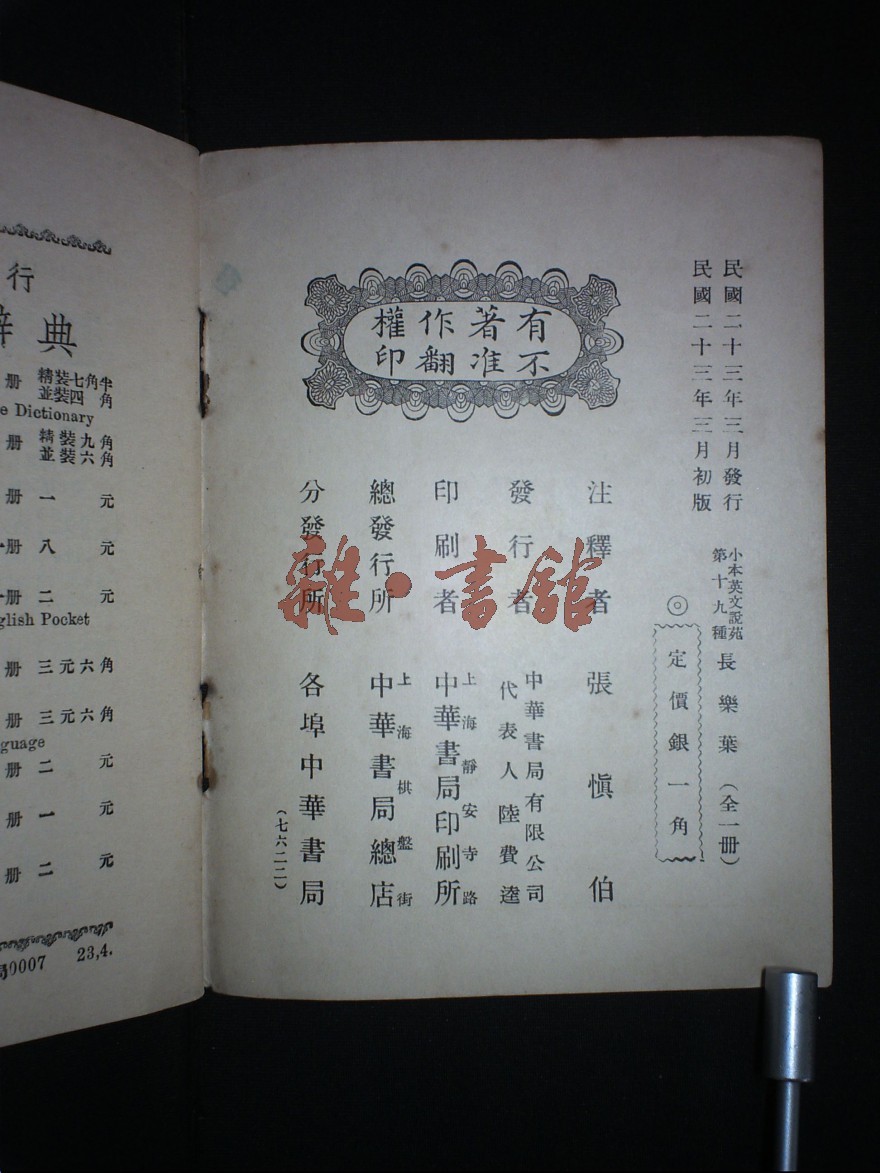 民國二十三年三月發行
民國二十三年三月初版
小本英文說苑
第十九種
長樂葉（全一册）
◎
定價銀一角
有著作權
不准翻印
注釋者 張慎伯
發行者 中華書局有限公司
代表人 陸費逵
印刷者 上海靜安寺路
中華書局印刷所
總發行所 上海棋盤街
中華書局總店
分發行所 各埠中華書局
（七六二二）
雜·書館
行
辭典
册 精裝七角半
並裝四角
e Dictionary
册 精裝九角
並裝六角
册 一元
册 八元
册 二元
glish Pocket
册 三元六角
册 三元六角
nguage
册 二元
册 一元
册 二元
0007 23,4.